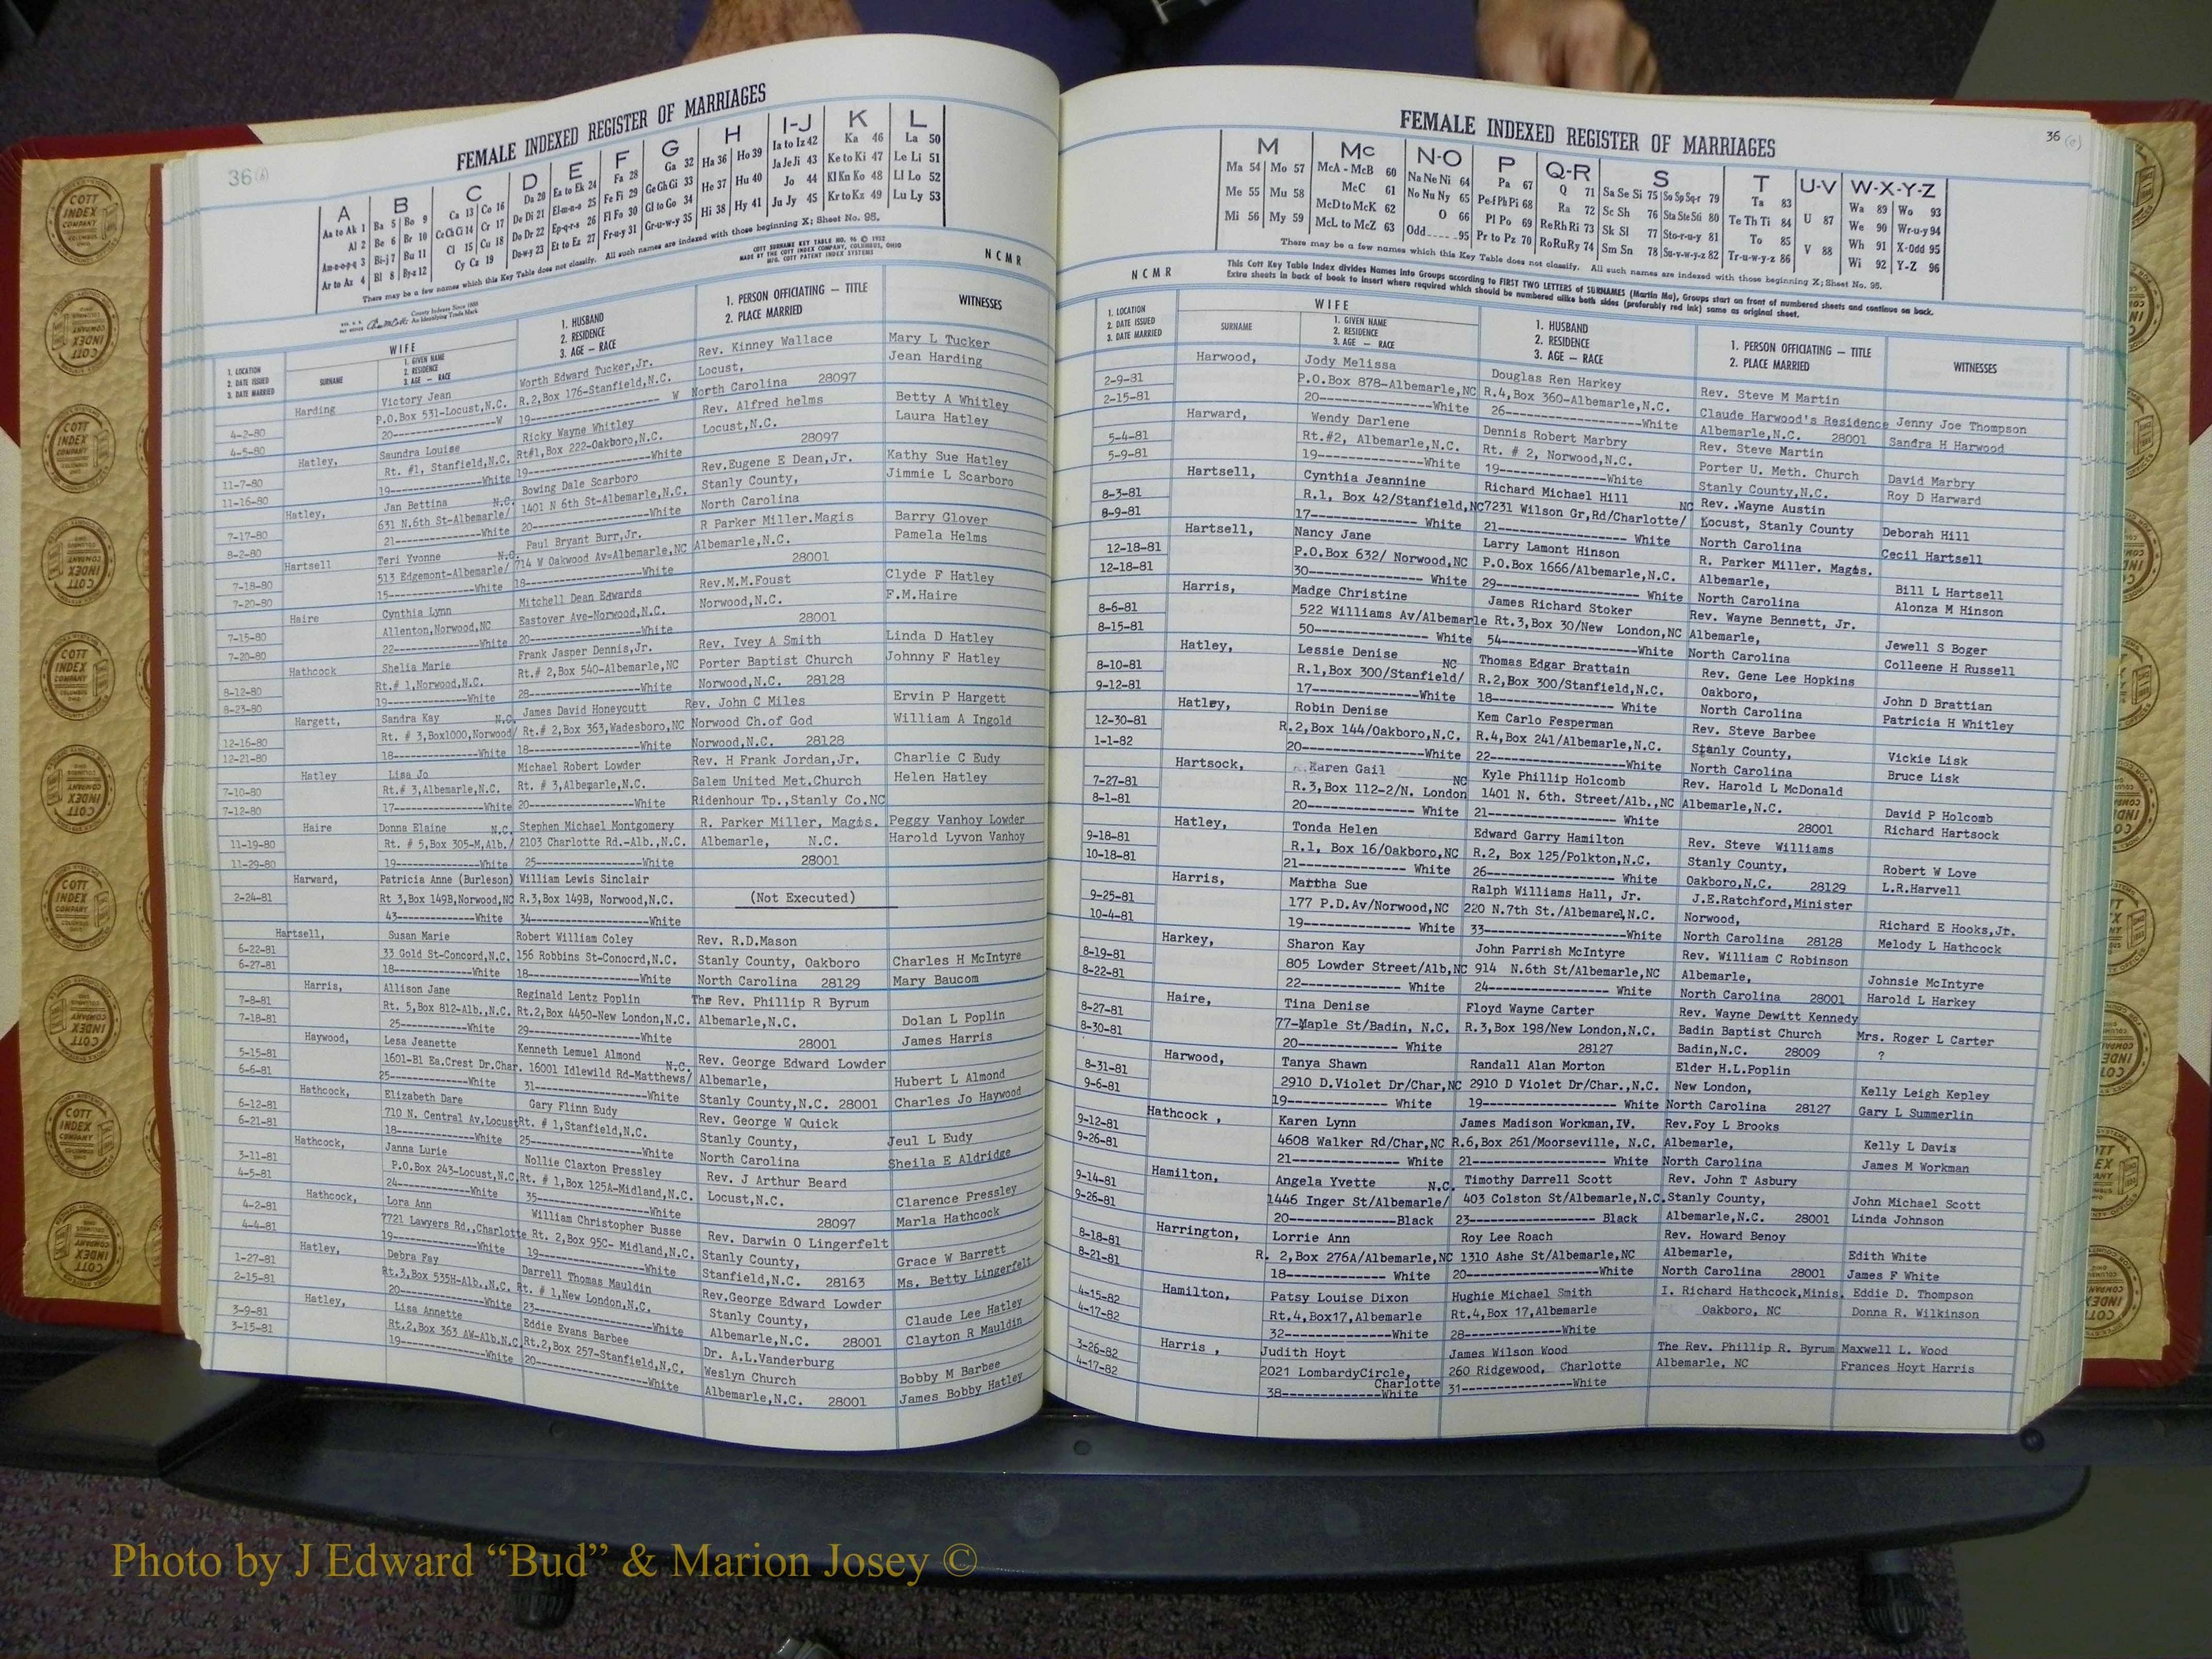 FEMALE INDEXED REGISTER OF MARRIAGES
36 (b)
A B C D E F G H I-J K L
Aa to Ak 1 Ba 5 Bo 9 Ca 13 Co 16 Da 20 Ea to Ek 24 Fa 28 Ga 32 Ha 36 Ho 39 Ia to Iz 42 Ka 46 La 50
Al 2 Be 6 Br 10 Ce Ch Ci 14 Cr 17 De Di 21 El-m-n-o 25 Fe Fi 29 Ge Gh Gi 33 He 37 Hu 40 Ja Je Ji 43 Ke to Ki 47 Le Li 51
Am-n-o-p-q 3 Bi-j 7 Bu 11 Cl 15 Cu 18 Do Dr 22 Ep-q-r-s 26 Fl Fo 30 Gl to Go 34 Hi 38 Hy 41 Jo 44 Kl Kn Ko 48 Ll Lo 52
Ar to Az 4 Bl 8 By-z 12 Cy Cz 19 Du-w-y 23 Et to Ez 27 Fr-u-y 31 Gr-u-w-y 35 Ju Jy 45 Kr to Kz 49 Lu Ly 53
There may be a few names which this Key Table does not classify. All such names are indexed with those beginning X; Sheet No. 95.
County Indexes Since 1888
An Identifying Trade Mark
COTT SURNAME KEY TABLE NO. 96 © 1952
MADE BY THE COTT INDEX COMPANY, COLUMBUS, OHIO
MFG. COTT PATENT INDEX SYSTEMS
N C M R
1. LOCATION
2. DATE ISSUED
3. DATE MARRIED
WIFE
SURNAME
1. GIVEN NAME
2. RESIDENCE
3. AGE — RACE
1. HUSBAND
2. RESIDENCE
3. AGE — RACE
1. PERSON OFFICIATING — TITLE
2. PLACE MARRIED
WITNESSES
Harding Victory Jean Worth Edward Tucker,Jr. Rev. Kinney Wallace Mary L Tucker
4-2-80 P.O.Box 531-Locust,N.C. R.2,Box 176-Stanfield,N.C. Locust, Jean Harding
4-5-80 20----------------W 19-------------------- W North Carolina 28097
Hatley, Saundra Louise Ricky Wayne Whitley Rev. Alfred helms Betty A Whitley
11-7-80 Rt. #1, Stanfield,N.C. Rt#1,Box 222-Oakboro,N.C. Locust,N.C. Laura Hatley
11-16-80 19-----------------White 19--------------------White 28097
Hatley, Jan Bettina N.C. Bowing Dale Scarboro Rev.Eugene E Dean,Jr. Kathy Sue Hatley
7-17-80 631 N.6th St-Albemarle/ 1401 N 6th St-Albemarle,N.C. Stanly County, Jimmie L Scarboro
8-2-80 21----------------White 20-------------------White North Carolina
Hartsell Teri Yvonne N.C. Paul Bryant Burr,Jr. R Parker Miller.Magis Barry Glover
7-18-80 513 Edgemont-Albemarle/ 714 W Oakwood Av=Albemarle,NC Albemarle,N.C. Pamela Helms
7-20-80 15----------------White 18--------------------White 28001
Haire Cynthia Lynn Mitchell Dean Edwards Rev.M.M.Foust Clyde F Hatley
7-15-80 Allenton,Norwood,NC Eastover Ave-Norwood,N.C. Norwood,N.C. F.M.Haire
7-20-80 22----------------White 20-------------------White 28001
Hathcock Shelia Marie Frank Jasper Dennis,Jr. Rev. Ivey A Smith Linda D Hatley
8-12-80 Rt.# 1,Norwood,N.C. Rt.# 2,Box 540-Albemarle,NC Porter Baptist Church Johnny F Hatley
8-23-80 19-----------------White 28-------------------White Norwood,N.C. 28128
Hargett, Sandra Kay N.C. James David Honeycutt Rev. John C Miles Ervin P Hargett
12-16-80 Rt. # 3,Box1000,Norwood/ Rt.# 2,Box 363,Wadesboro,NC Norwood Ch.of God William A Ingold
12-21-80 18----------------White 18-------------------White Norwood,N.C. 28128
Hatley Lisa Jo Michael Robert Lowder Rev. H Frank Jordan,Jr. Charlie C Eudy
7-10-80 Rt.# 3,Albemarle,N.C. Rt. # 3,Albemarle,N.C. Salem United Met.Church Helen Hatley
7-12-80 17----------------White 20------------------White Ridenhour Tp.,Stanly Co.NC
Haire Donna Elaine N.C. Stephen Michael Montgomery R. Parker Miller, Magis. Peggy Vanhoy Lowder
11-19-80 Rt. # 5,Box 305-M,Alb./ 2103 Charlotte Rd.-Alb.,N.C. Albemarle, N.C. Harold Lyvon Vanhoy
11-29-80 19---------------White 25-------------------White 28001
Harward, Patricia Anne (Burleson) William Lewis Sinclair
2-24-81 Rt 3,Box 149B,Norwood,NC R.3,Box 149B, Norwood,N.C. (Not Executed)
43----------------White 34-------------------White
Hartsell, Susan Marie Robert William Coley Rev. R.D.Mason
6-22-81 33 Gold St-Concord,N.C. 156 Robbins St-Conocrd,N.C. Stanly County, Oakboro Charles H McIntyre
6-27-81 18--------------White 18------------------White North Carolina 28129 Mary Baucom
Harris, Allison Jane Reginald Lentz Poplin The Rev. Phillip R Byrum
7-8-81 Rt. 5,Box 812-Alb.,N.C. Rt.2,Box 4450-New London,N.C. Albemarle,N.C. Dolan L Poplin
7-18-81 25---------------White 29-------------------White 28001 James Harris
Haywood, Lesa Jeanette Kenneth Lemuel Almond N.C. Rev. George Edward Lowder
5-15-81 1601-B1 Ea.Crest Dr.Char. 16001 Idlewild Rd-Matthews/ Albemarle, Hubert L Almond
6-6-81 25-------------White 31------------------White Stanly County,N.C. 28001 Charles Jo Haywood
Hathcock, Elizabeth Dare Gary Flinn Eudy Rev. George W Quick
6-12-81 710 N. Central Av.Locust Rt. # 1,Stanfield,N.C. Stanly County, Jeul L Eudy
6-21-81 18---------------White 25-------------------White North Carolina Sheila E Aldridge
Hathcock, Janna Lurie Nollie Claxton Pressley Rev. J Arthur Beard
3-11-81 P.O.Box 243-Locust,N.C. Rt. # 1,Box 125A-Midland,N.C. Locust,N.C. Clarence Pressley
4-5-81 24-------------White 35-------------------White 28097 Marla Hathcock
Hathcock, Lora Ann William Christopher Busse Rev. Darwin O Lingerfelt
4-2-81 7721 Lawyers Rd.,Charlotte Rt. 2,Box 95C- Midland,N.C. Stanly County, Grace W Barrett
4-4-81 19---------------White 19------------------White Stanfield,N.C. 28163 Ms. Betty Lingerfelt
Hatley, Debra Fay Darrell Thomas Mauldin Rev.George Edward Lowder
1-27-81 Rt.3,Box 535H-Alb.,N.C. Rt. # 1,New London,N.C. Stanly County, Claude Lee Hatley
2-15-81 20---------------White 23--------------------White Albemarle,N.C. 28001 Clayton R Mauldin
Hatley, Lisa Annette Eddie Evans Barbee Dr. A.L.Vanderburg
3-9-81 Rt.2,Box 363 AW-Alb.N.C. Rt.2,Box 257-Stanfield,N.C. Weslyn Church Bobby M Barbee
3-15-81 19---------------White 20-------------------White Albemarle,N.C. 28001 James Bobby Hatley
FEMALE INDEXED REGISTER OF MARRIAGES
36 (c)
M Mc N-O P Q-R S T U-V W-X-Y-Z
Ma 54 Mo 57 McA - McB 60 Na Ne Ni 64 Pa 67 Q 71 Sa Se Si 75 So Sp Sq-r 79 Ta 83 U 87 Wa 89 Wo 93
Me 55 Mu 58 McC 61 No Nu Ny 65 Pe-f Ph Pi 68 Ra 72 Sc Sh 76 Sta Ste Sti 80 Te Th Ti 84 V 88 We 90 Wr-u-y 94
Mi 56 My 59 McD to McK 62 O 66 Pl Po 69 Re Rh Ri 73 Sk Sl 77 Sto-r-u-y 81 To 85 Wh 91 X-Odd 95
McL to McZ 63 Odd ..... 95 Pr to Pz 70 Ro Ru Ry 74 Sm Sn 78 Su-v-w-y-z 82 Tr-u-w-y-z 86 Wi 92 Y-Z 96
There may be a few names which this Key Table does not classify. All such names are indexed with those beginning X; Sheet No. 95.
N C M R
This Cott Key Table Index divides Names into Groups according to FIRST TWO LETTERS of SURNAMES (Martin Ma), Groups start on front of numbered sheets and continue on back.
Extra sheets in back of book to insert where required which should be numbered alike both sides (preferably red ink) same as original sheet.
1. LOCATION
2. DATE ISSUED
3. DATE MARRIED
WIFE
SURNAME
1. GIVEN NAME
2. RESIDENCE
3. AGE — RACE
1. HUSBAND
2. RESIDENCE
3. AGE — RACE
1. PERSON OFFICIATING — TITLE
2. PLACE MARRIED
WITNESSES
Harwood, Jody Melissa Douglas Ren Harkey Rev. Steve M Martin
2-9-81 P.O.Box 878-Albemarle,NC R.4,Box 360-Albemarle,N.C. Claude Harwood's Residence Jenny Joe Thompson
2-15-81 20-----------------White 26--------------------White Albemarle,N.C. 28001 Sandra H Harwood
Harward, Wendy Darlene Dennis Robert Marbry Rev. Steve Martin
5-4-81 Rt.#2, Albemarle,N.C. Rt. # 2, Norwood,N.C. Porter U. Meth. Church David Marbry
5-9-81 19---------------White 19-------------------White Stanly County,N.C. Roy D Harward
Hartsell, Cynthia Jeannine Richard Michael Hill NC Rev. .Wayne Austin
8-3-81 R.1, Box 42/Stanfield,NC 7231 Wilson Gr,Rd/Charlotte/ Locust, Stanly County Deborah Hill
8-9-81 17--------------- White 21------------------- White North Carolina Cecil Hartsell
Hartsell, Nancy Jane Larry Lamont Hinson R. Parker Miller. Magis.
12-18-81 P.O.Box 632/ Norwood,NC P.O.Box 1666/Albemarle,N.C. Albemarle, Bill L Hartsell
12-18-81 30---------------- White 29-------------------- White North Carolina Alonza M Hinson
Harris, Madge Christine James Richard Stoker Rev. Wayne Bennett, Jr.
8-6-81 522 Williams Av/Albemarle Rt.3,Box 30/New London,NC Albemarle, Jewell S Boger
8-15-81 50---------------- White 54-------------------White North Carolina Colleene H Russell
Hatley, Lessie Denise NC Thomas Edgar Brattain Rev. Gene Lee Hopkins
8-10-81 R.1,Box 300/Stanfield/ R.2,Box 300/Stanfield,N.C. Oakboro, John D Brattian
9-12-81 17----------------White 18------------------- White North Carolina Patricia H Whitley
Hatley, Robin Denise Kem Carlo Fesperman Rev. Steve Barbee
12-30-81 R.2,Box 144/Oakboro,N.C. R.4,Box 241/Albemarle,N.C. Stanly County, Vickie Lisk
1-1-82 20-----------------White 22------------------White North Carolina Bruce Lisk
Hartsock, Karen Gail NC Kyle Phillip Holcomb Rev. Harold L McDonald
7-27-81 R.3,Box 112-2/N. London 1401 N. 6th. Street/Alb.,NC Albemarle,N.C. David P Holcomb
8-1-81 20---------------- White 21------------------ White 28001 Richard Hartsock
Hatley, Tonda Helen Edward Garry Hamilton Rev. Steve Williams
9-18-81 R.1, Box 16/Oakboro,NC R.2, Box 125/Polkton,N.C. Stanly County, Robert W Love
10-18-81 21---------------- White 26------------------ White Oakboro,N.C. 28129 L.R.Harvell
Harris, Martha Sue Ralph Williams Hall, Jr. J.E.Ratchford,Minister
9-25-81 177 P.D.Av/Norwood,NC 220 N.7th St./Albemarel,N.C. Norwood, Richard E Hooks,Jr.
10-4-81 19--------------- White 33-------------------White North Carolina 28128 Melody L Hathcock
Harkey, Sharon Kay John Parrish McIntyre Rev. William C Robinson
8-19-81 805 Lowder Street/Alb,NC 914 N.6th St/Albemarle,NC Albemarle, Johnsie McIntyre
8-22-81 22---------------- White 24------------------ White North Carolina 28001 Harold L Harkey
Haire, Tina Denise Floyd Wayne Carter Rev. Wayne Dewitt Kennedy
8-27-81 77-Maple St/Badin, N.C. R.3,Box 198/New London,N.C. Badin Baptist Church Mrs. Roger L Carter
8-30-81 20---------------- White 28127 Badin,N.C. 28009 ?
Harwood, Tanya Shawn Randall Alan Morton Elder H.L.Poplin
8-31-81 2910 D.Violet Dr/Char,NC 2910 D Violet Dr/Char.,N.C. New London, Kelly Leigh Kepley
9-6-81 19---------------- White 19------------------- White North Carolina 28127 Gary L Summerlin
Hathcock , Karen Lynn James Madison Workman,IV. Rev.Foy L Brooks
9-12-81 4608 Walker Rd/Char,NC R.6,Box 261/Moorseville, N.C. Albemarle, Kelly L Davis
9-26-81 21--------------- White 21------------------- White North Carolina James M Workman
Hamilton, Angela Yvette N.C. Timothy Darrell Scott Rev. John T Asbury
9-14-81 1446 Inger St/Albemarle/ 403 Colston St/Albemarle,N.C. Stanly County, John Michael Scott
9-26-81 20----------------Black 23------------------- Black Albemarle,N.C. 28001 Linda Johnson
Harrington, Lorrie Ann Roy Lee Roach Rev. Howard Benoy
8-18-81 R. 2,Box 276A/Albemarle,NC 1310 Ashe St/Albemarle,NC Albemarle, Edith White
8-21-81 18---------------- White 20-------------------White North Carolina 28001 James F White
Hamilton, Patsy Louise Dixon Hughie Michael Smith I. Richard Hathcock,Minis. Eddie D. Thompson
4-15-82 Rt.4,Box17,Albemarle Rt.4,Box 17,Albemarle Oakboro, NC Donna R. Wilkinson
4-17-82 32---------------White 28-----------------White
Harris , Judith Hoyt James Wilson Wood The Rev. Phillip R. Byrum Maxwell L. Wood
3-26-82 2021 LombardyCircle, 260 Ridgewood, Charlotte Albemarle, NC Frances Hoyt Harris
4-17-82 Charlotte
38---------------White 31------------------White
COTT INDEX COMPANY
Photo by J Edward “Bud” & Marion Josey ©